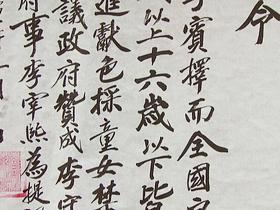 令
賓擇而全國
以上十六歲以下皆
進獻色採童女禁
議政府贊成李守
府事李宰熙為提